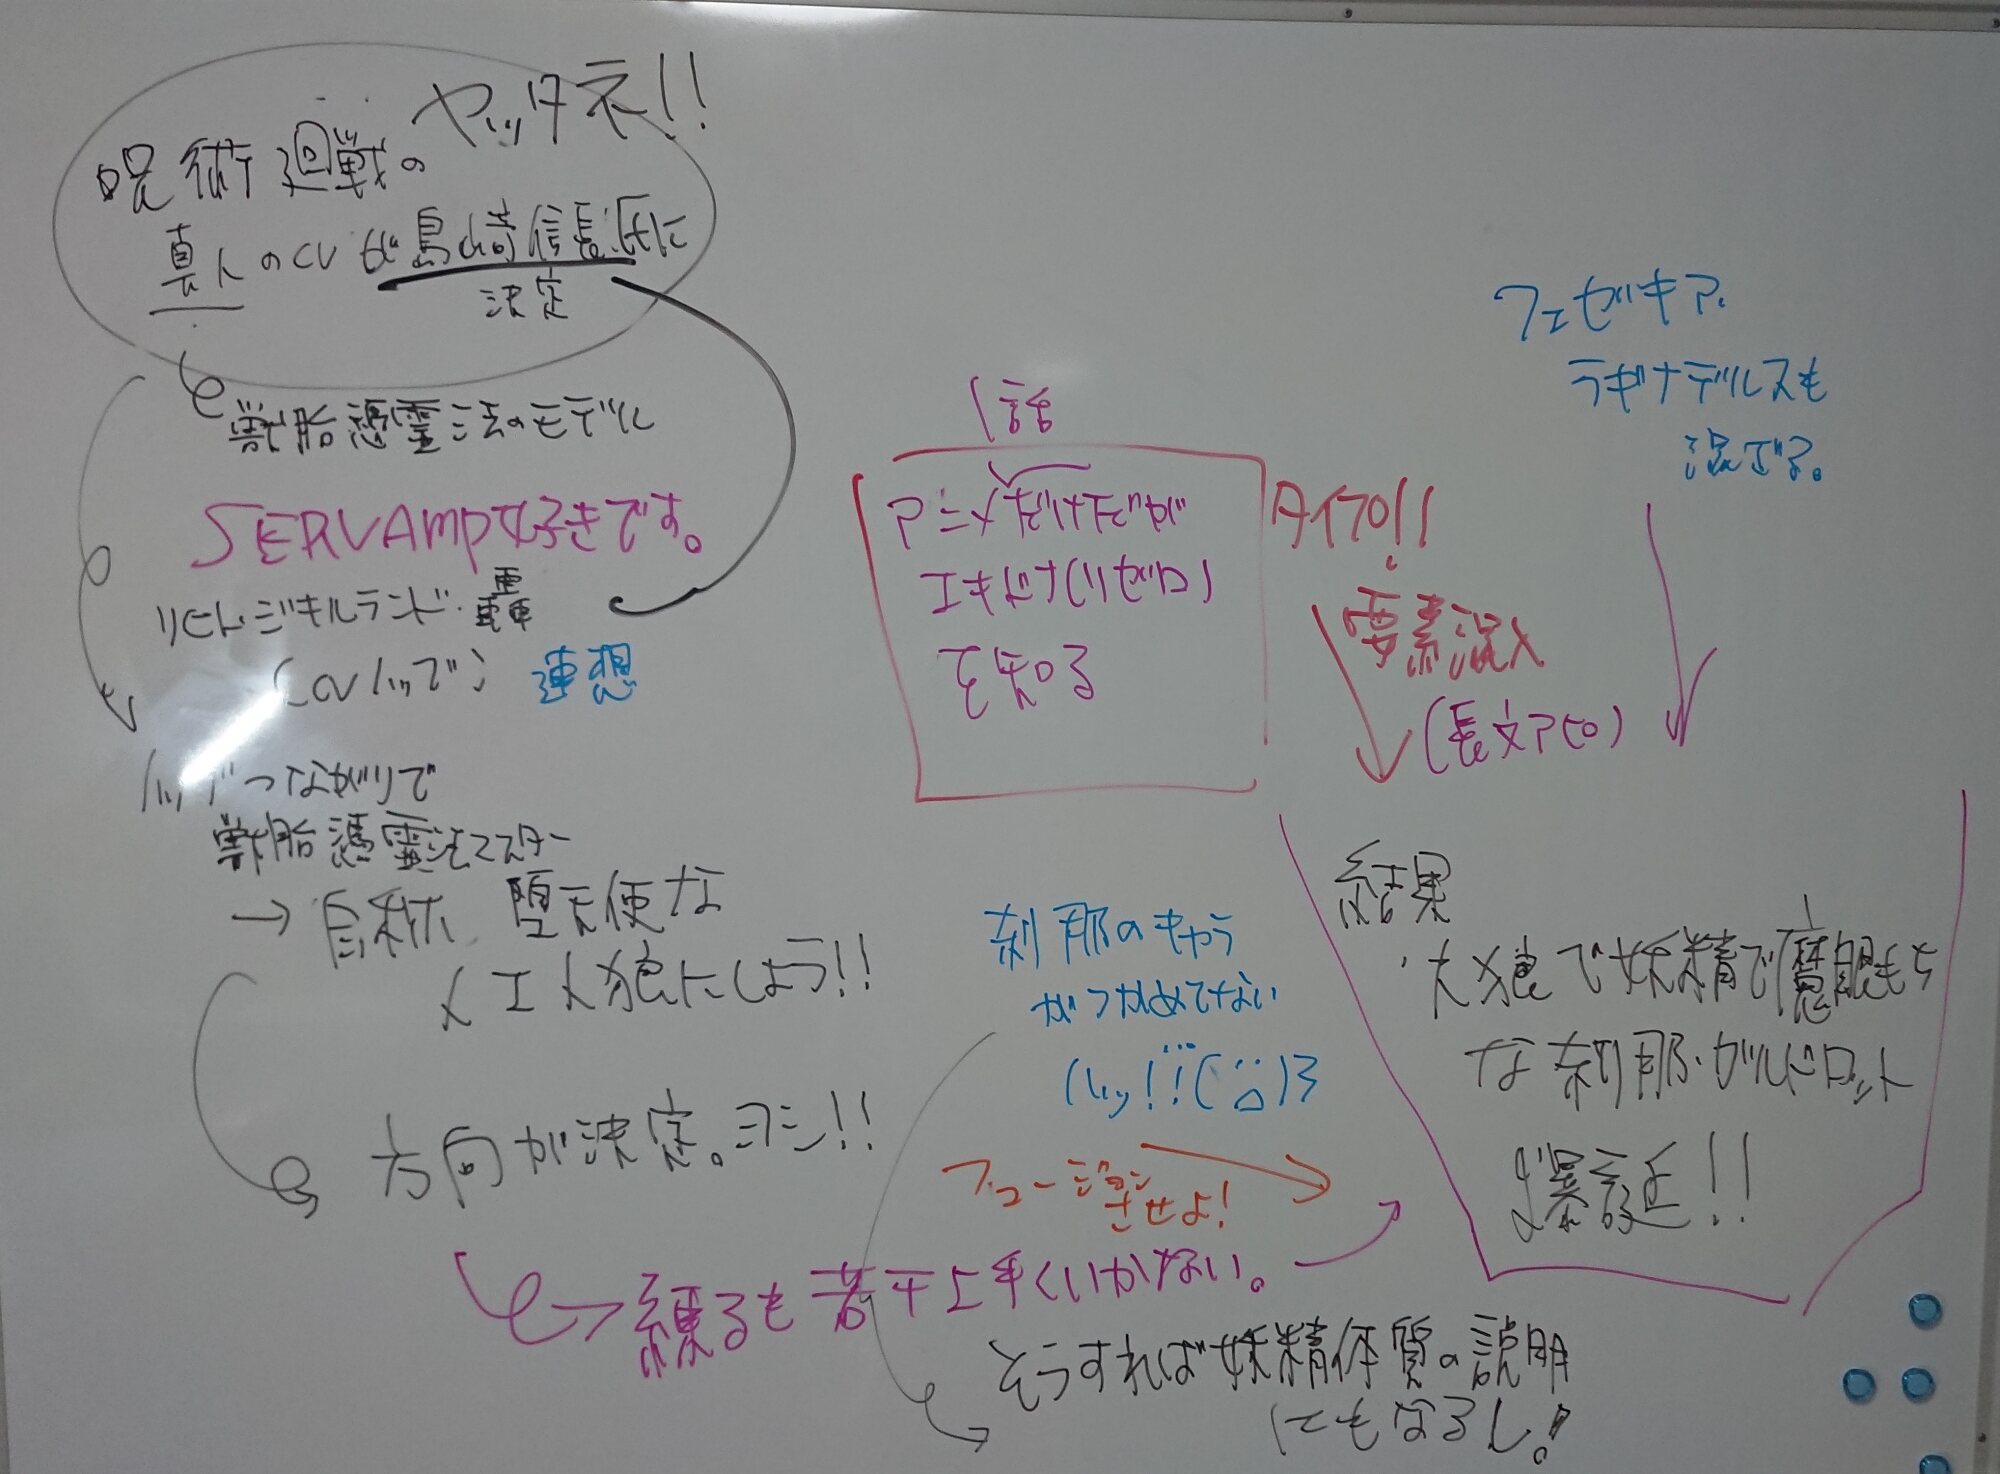 ヤッタネ!!
呪術廻戦の
真人のCVが島﨑信長氏に
決定
獣胎憑霊法のモデル
SERVAMP好きです。
リヒト・ジキルランド・轟
(CVノッブ)
連想
ノッブつながりで
獣胎憑霊法マスター
→自称、堕天使な
人工人狼にしよう!!
方向が決定。ヨシ!!
練るも若干上手くいかない。
1話
アニメ
エキドナ(リゼロ)
を知る
タイプ!!
要素混入
(長文アピ)
フェゼキア・
ラギナデルスも
混ぜる。
刹那のキャラ
がつかめてない
フュージョン
させよ!
そうすれば妖精体質の説明
にもなるし!
結果
人狼で妖精で魔眼もち
な刹那・ガルドロット
爆誕!!